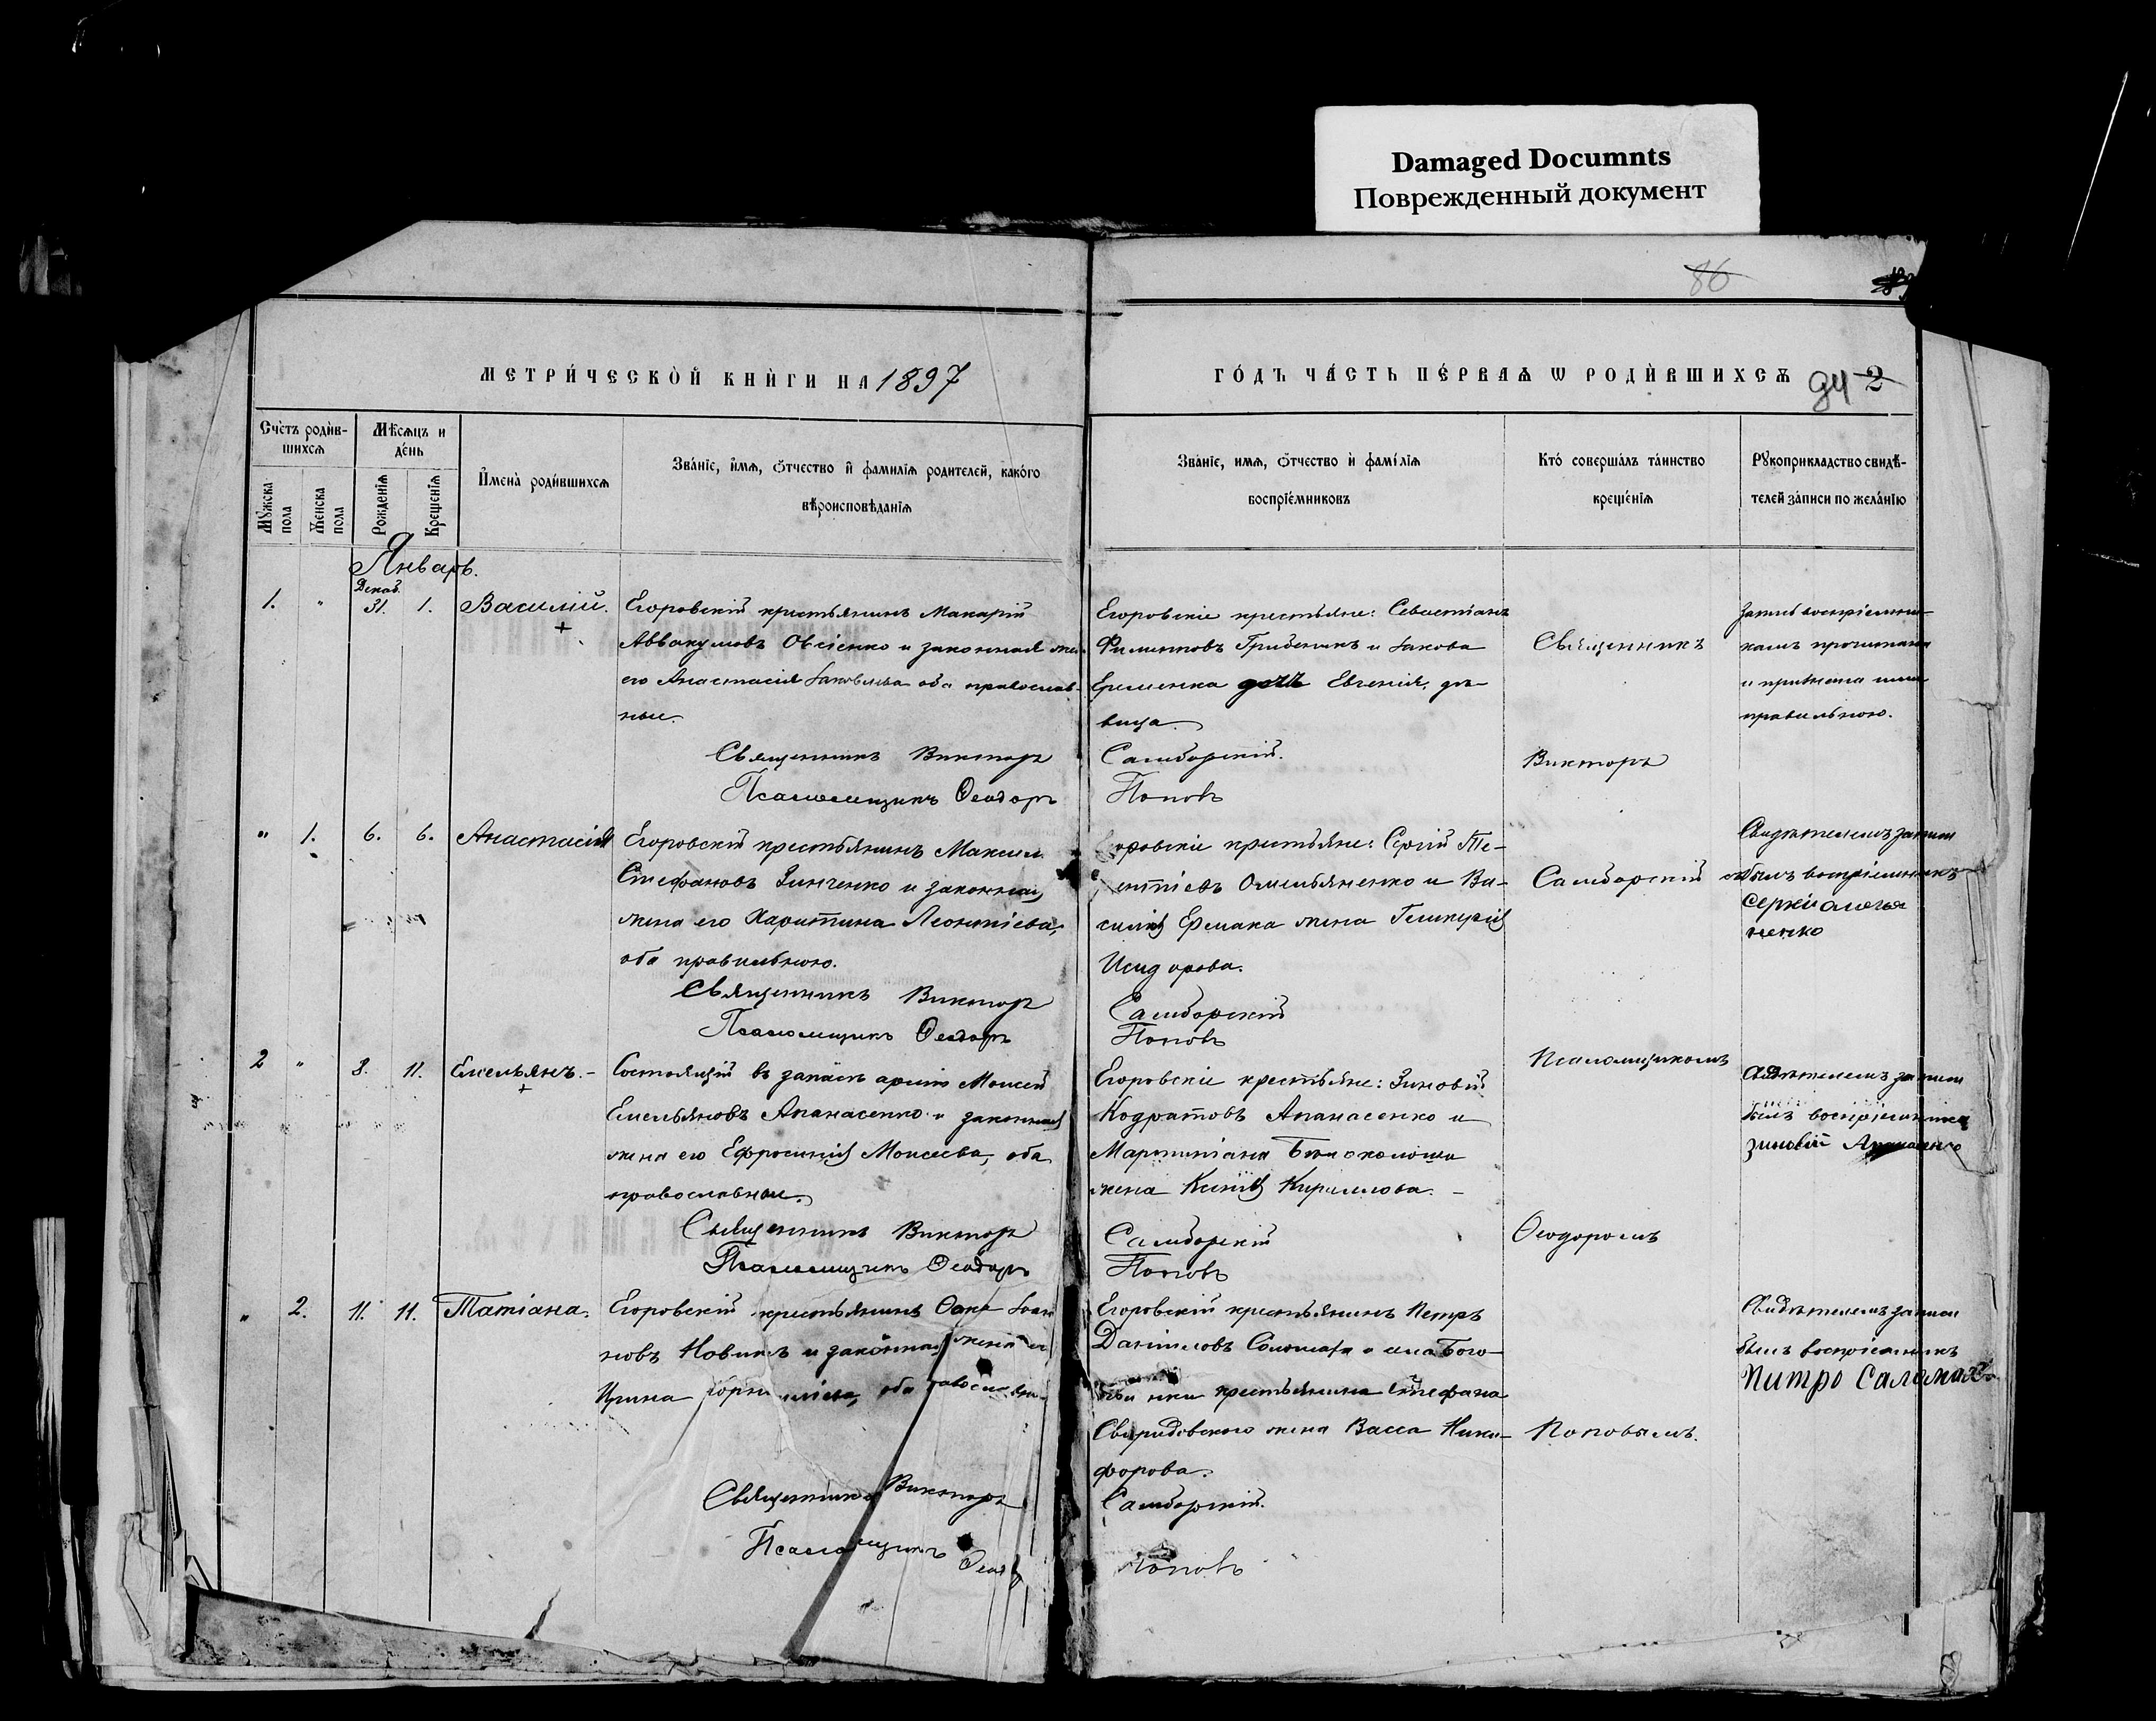 Damaged Documnts
Поврежденный документ
86
МЕТРИ́ЧЕСКОЙ КНИ́ГИ НА 1897
ГО́ДЪ ЧА́СТЬ ПЕ́РВАѦ Ѡ РОДИ́ВШИХСѦ
94 2
Сче́тъ роди́в-
шихсѧ
Мѣ́сѧцъ и
де́нь
Мꙋ́жска
пола
Же́нска
пола
Рожденїѧ
Крещенїѧ
И҆мена̀ роди́вшихсѧ
Зва́нїе, и҆́мѧ, ѻ҆́тчество и҆ фами́лїѧ родителей, како́гѡ
вѣроисповѣ́данїѧ
Зва́нїе, имѧ, ѻ҆́тчество и҆ фамі́лїѧ
воспрїе́мниковъ
Кто́ соверша́лъ та́инство
креще́нїѧ
Рꙋкоприкладство свидѣ́-
телей за́писи по жела́нїю
Январь.
1. " Декаб. 31. 1. Василій.
Егоровскій крестьянинъ Макарій
Аввакумовъ Овсіенко и законная жена
его Анастасія Іаковлева оба православ-
ные.
Священникъ Викторъ
Псаломщикъ Ѳеодоръ
Егоровскіе крестьяне: Севастіанъ
Филипповъ Гребеникъ и Іакова
Еременка дочь Евгенія, дѣ-
вица.
Самборскій.
Поповъ
Священникъ
Викторъ
Запись воспріемни-
камъ прочитана
и признана ими
правильною.
" 1. 6. 6. Анастасія
Егоровскій крестьянинъ Максим
Стефановъ Зинченко и законная
жена его Харитина Леонтіева,
оба правильною.
Священникъ Викторъ
Псаломщикъ Ѳеодоръ
Егоровскіе крестьяне: Сергій Те-
рентіевъ Омельяненко и Ва-
силія Ермака жена Гликерія
Исидорова.
Самборскій
Поповъ
Самборскій съ
Свидѣтелемъ записи
былъ воспріемникъ
Серкій омелья
ненко
2 " 8. 11. Емельянъ.
Состоящій въ запасѣ арміи Моисей
Емельяновъ Апанасенко и законная
жена его Ефросинія Моисеева, оба
православные.
Священникъ Викторъ
Псаломщикъ Ѳеодоръ
Егоровскіе крестьяне: Зиновій
Кодратовъ Апанасенко и
Мартиніана
жена Ксенія Кириллова.
Самборскій
Поповъ
Псаломщикомъ
Ѳеодоромъ
Свидѣтелемъ записи
былъ воспріемникъ
зиновій Апанасенко
" 2. 11. 11. Татіана.
Егоровскій крестьянинъ Ѳока Іоан
новъ Новикъ и законная жена его
Ирина Корниліева, оба православн.
Священникъ Викторъ
Псаломщикъ Ѳеодоръ
Егоровскій крестьянинъ Петръ
Даниловъ
крестьянина Стефана
Свиридовского жена Васса Ники-
форова.
Самборскій.
Поповъ
Поповымъ.
Свидѣтелемъ записи
былъ воспріемникъ
Питро Саламаха